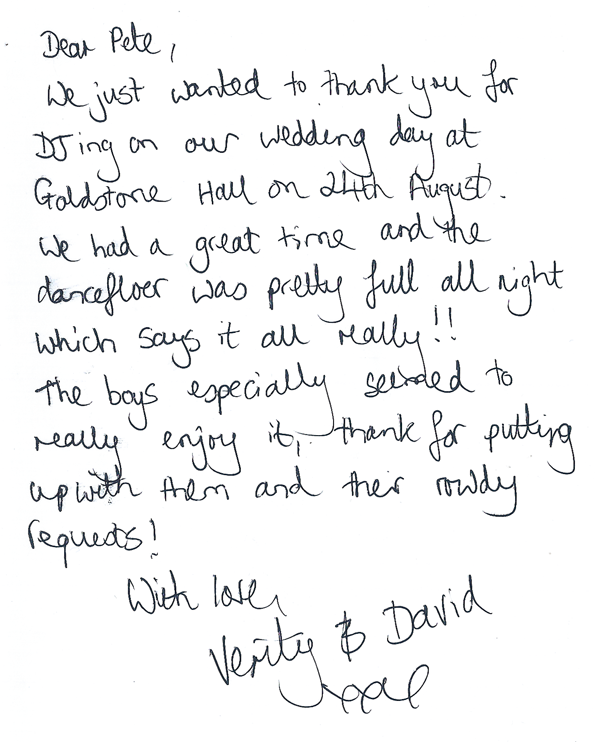 Dear Pete,
We just wanted to thank you for
DJing on our wedding day at
Goldstone Hall on 24th August.
We had a great time and the
dancefloor was pretty full all night
which says it all really!!
The boys especially seemed to
really enjoy it, thank for putting
up with them and their rowdy
requests!
With love,
Verity & David
xxx